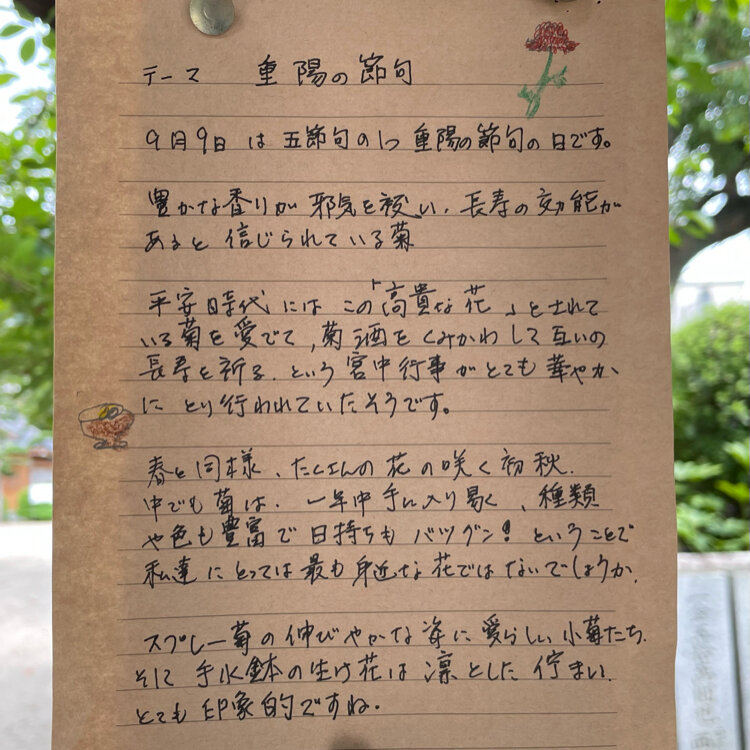 テーマ 重陽の節句
9月9日は五節句の1つ 重陽の節句の日です。
豊かな香りが邪気を祓い、長寿の効能が
あると信じられている菊
平安時代にはこの「高貴な花」とされて
いる菊を愛でて、菊酒をくみかわして互いの
長寿を祈る、という宮中行事がとても華やか
にとり行われていたそうです。
春と同様、たくさんの花の咲く初秋、
中でも菊は、一年中手に入り易く、種類
や色も豊富で日持ちもバツグン!ということで
私達にとっては最も身近な花ではないでしょうか、
スプレー菊の伸びやかな姿に愛らしい小菊たち、
そして手水鉢の生け花は凛とした佇まい、
とても印象的ですね。